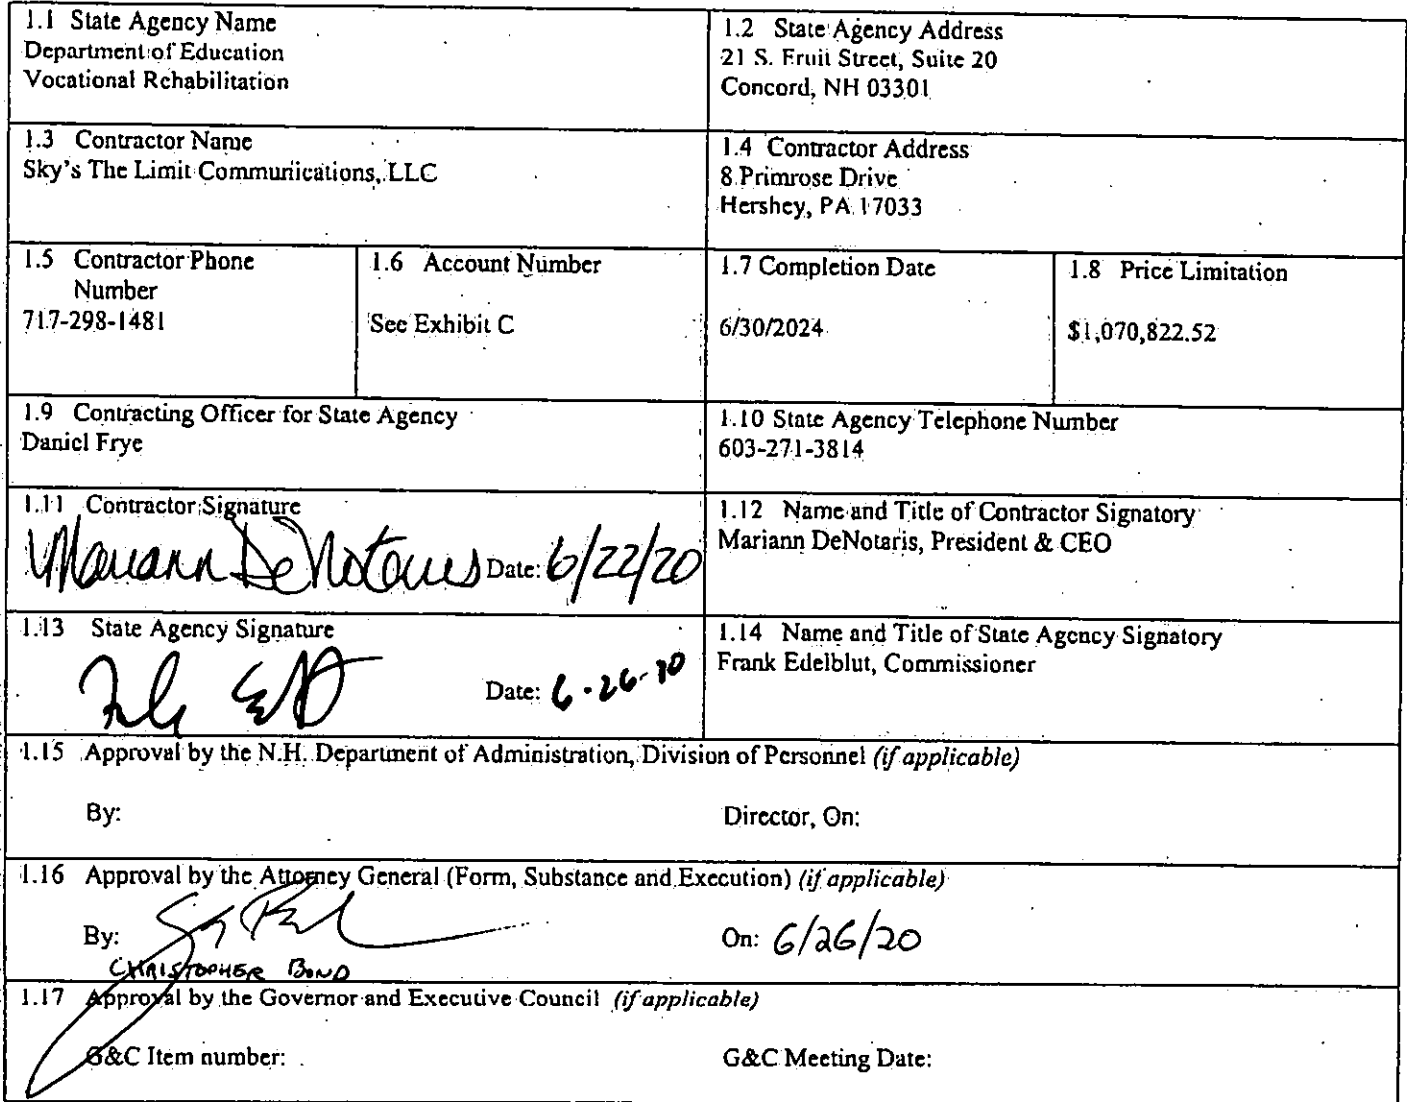 1.1 State Agency Name
Department of Education
Vocational Rehabilitation
1.2 State Agency Address
21 S. Fruit Street, Suite 20
Concord, NH 03301
1.3 Contractor Name
Sky's The Limit Communications, LLC
1.4 Contractor Address
8 Primrose Drive
Hershey, PA 17033
1.5 Contractor Phone
Number
717-298-1481
1.6 Account Number
See Exhibit C
1.7 Completion Date
6/30/2024
1.8 Price Limitation
$1,070,822.52
1.9 Contracting Officer for State Agency
Daniel Frye
1.10 State Agency Telephone Number
603-271-3814
1.11 Contractor Signature
Mariann DeNotaris Date: 6/22/20
1.12 Name and Title of Contractor Signatory
Mariann DeNotaris, President & CEO
1.13 State Agency Signature
Date: 6-26-20
1.14 Name and Title of State Agency Signatory
Frank Edelblut, Commissioner
1.15 Approval by the N.H. Department of Administration, Division of Personnel (if applicable)
By: Director, On:
1.16 Approval by the Attorney General (Form, Substance and Execution) (if applicable)
By: On: 6/26/20
CHRISTOPHER BOND
1.17 Approval by the Governor and Executive Council (if applicable)
G&C Item number: G&C Meeting Date: